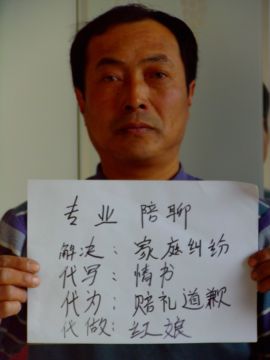 专业 陪聊
解决：家庭纠纷
代写：情书
代为：赔礼道歉
代做：红娘